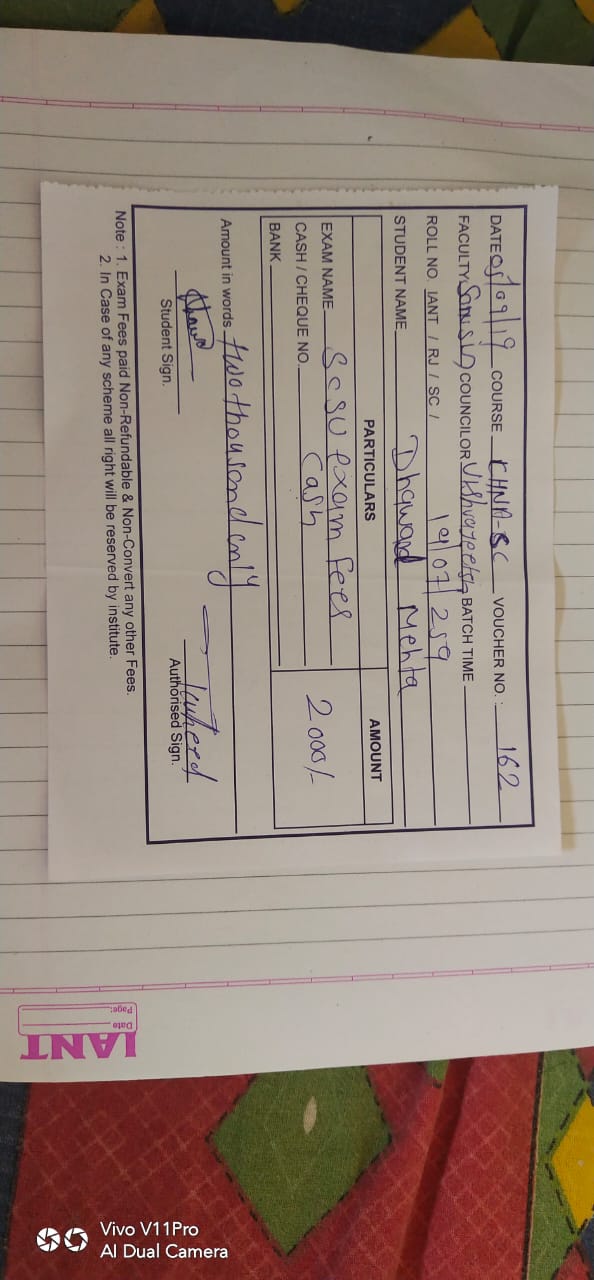 DATE 05/09/19 COURSE CHNA-SC VOUCHER NO. : 162
FACULTY COUNCILOR BATCH TIME
ROLL NO. IANT / RJ / SC / 19/07/259
STUDENT NAME Dhawani Mehta
PARTICULARS AMOUNT
EXAM NAME SCSU exam fees 2000/-
CASH / CHEQUE NO. Cash
BANK
Amount in words two thousand only
Student Sign. Authorised Sign.
Note : 1. Exam Fees paid Non-Refundable & Non-Convert any other Fees.
2. In Case of any scheme all right will be reserved by institute.
IANT
Date
Page:
Vivo V11Pro
AI Dual Camera